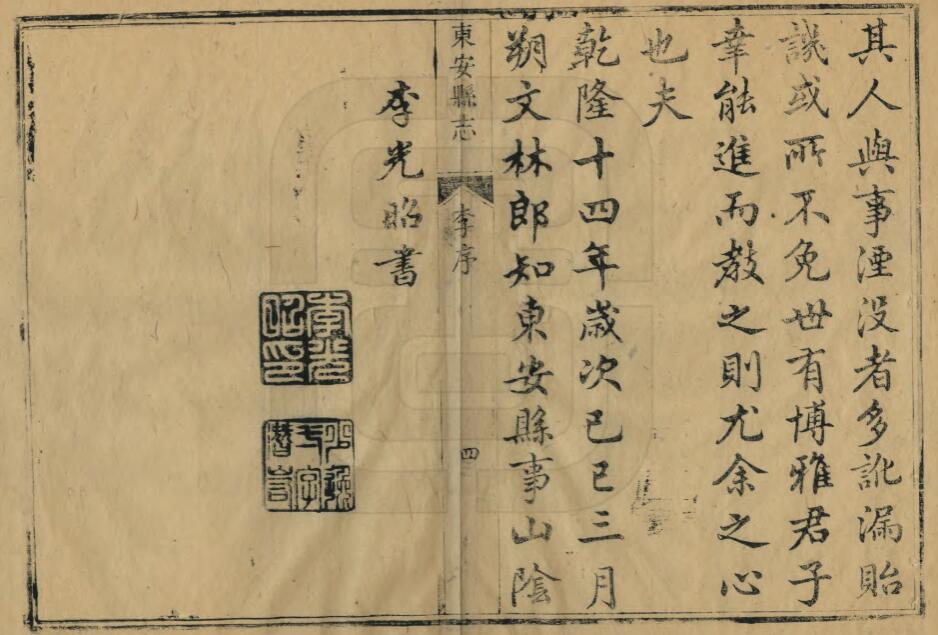 其人與事湮没者多訛漏貽
譏或所不免世有博雅君子
幸能進而教之則尤余之心
也夫
乾隆十四年歲次己巳三月
朔文林郎知東安縣事山陰
東安縣志
李序
四
李光昭書
李光昭印